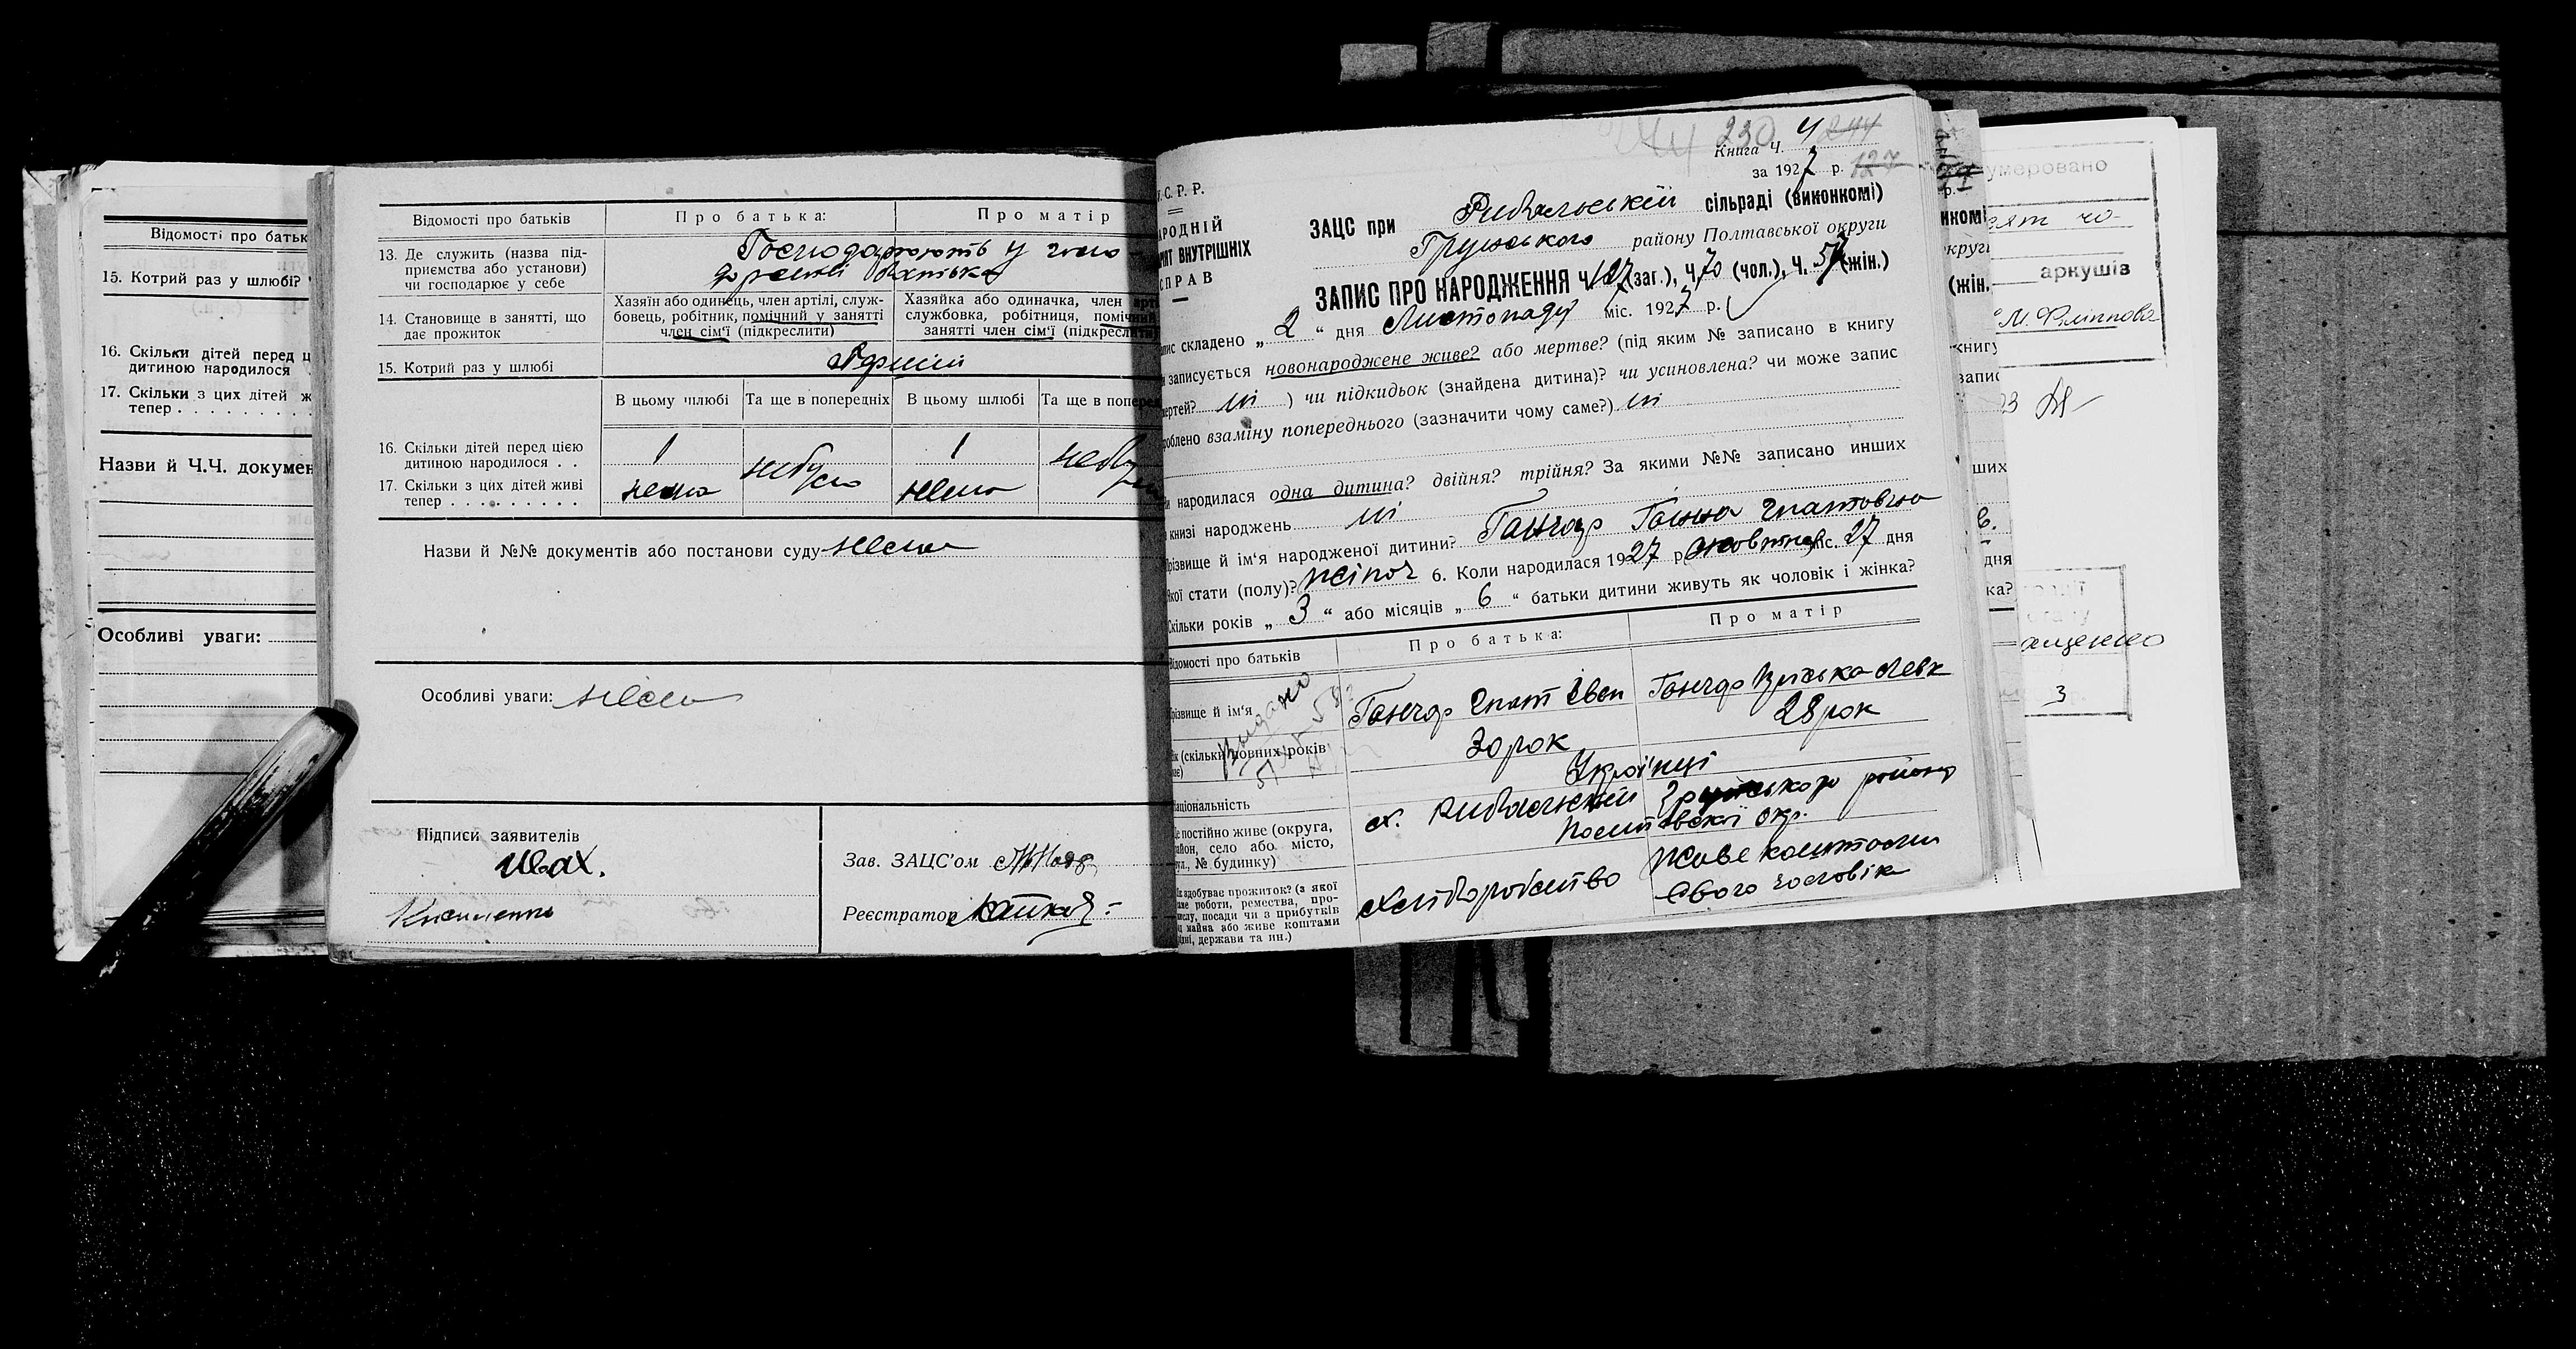 Відомості про батьк
15. Котрий раз у шлюбі?
16. Скільки дітей перед ц
дитиною народилося
17. Скільки з цих дітей ж
тепер . . . . . . . . .
Назви й Ч.Ч. докумен
Особливі уваги:
Відомості про батьків
Про батька:
Про матір
13. Де служить (назва під-
приємства або установи)
чи господарює у себе
Господарюють у госпо
батька
14. Становище в занятті, що
дає прожиток
Хазяїн або одинець, член артілі, служ-
бовець, робітник, помічний у занятті
член сім'ї (підкреслити)
Хазяйка або одиначка, член арті
службовка, робітниця, помічний
занятті член сім'ї (підкреслити)
15. Котрий раз у шлюбі
Перший
В цьому шлюбі
Та ще в попередніх
В цьому шлюбі
Та ще в поперед
16. Скільки дітей перед цією
дитиною народилося . .
1
1
17. Скільки з цих дітей живі
тепер . . . . . . . . .
нема
небуло
нема
Назви й №№ документів або постанови суду нема
Особливі уваги: нема
Підписи заявителів
Зав. ЗАЦС'ом
Реєстратор
У.С.Р.Р.
АРОДНІЙ
РІЯТ ВНУТРІШНІХ
СПРАВ
230
244
Книга Ч. 4
за 1927 р. 127
ЗАЦС при Рибальській сільраді (виконкомі)
Грунського району Полтавської округи
ЗАПИС ПРО НАРОДЖЕННЯ Ч. 127 (заг.), Ч. 70 (чол.), Ч. 57 (жін.)
пис складено „ 2 “ дня Листопаду міс. 1927 р.
записується новонароджене живе? або мертве? (під яким № записано в книгу
мертей? ні ) чи підкидьок (знайдена дитина)? чи усиновлена? чи може запис
роблено взаміну попереднього (зазначити чому саме?) ні
и народилася одна дитина? двійня? трійня? За якими №№ записано инших
книзі народжень ні
різвище й ім'я народженої дитини? Гончар Ганна Гнатовна
Якої стати (полу)? жіноч 6. Коли народилася 1927 р. жовтня міс. 27 дня
Скільки років „ 3 “ або місяців „ 6 “ батьки дитини живуть як чоловік і жінка?
Відомості про батьків
Про батька:
Про матір
різвище й ім'я
Гончар Гнат Іван
Гончар
ік (скільки повних років
має)
30 рок
28 рок
Національність
Українці
Де постійно живе (округа,
район, село або місто,
вул., № будинку)
х. Рибальський Грунського району
Полтавської Окр.
Як здобуває прожиток? (з якої
саме роботи, ремества, про-
мислу, посади чи з прибутків
майна або живе коштами
рідні, держави та ин.)
Хліборобство
Живе коштами
Свого чоловіка
нкомі
округи
(жін.
книгу
запис
ших
дня
ка?
умеровано
аркушів
3